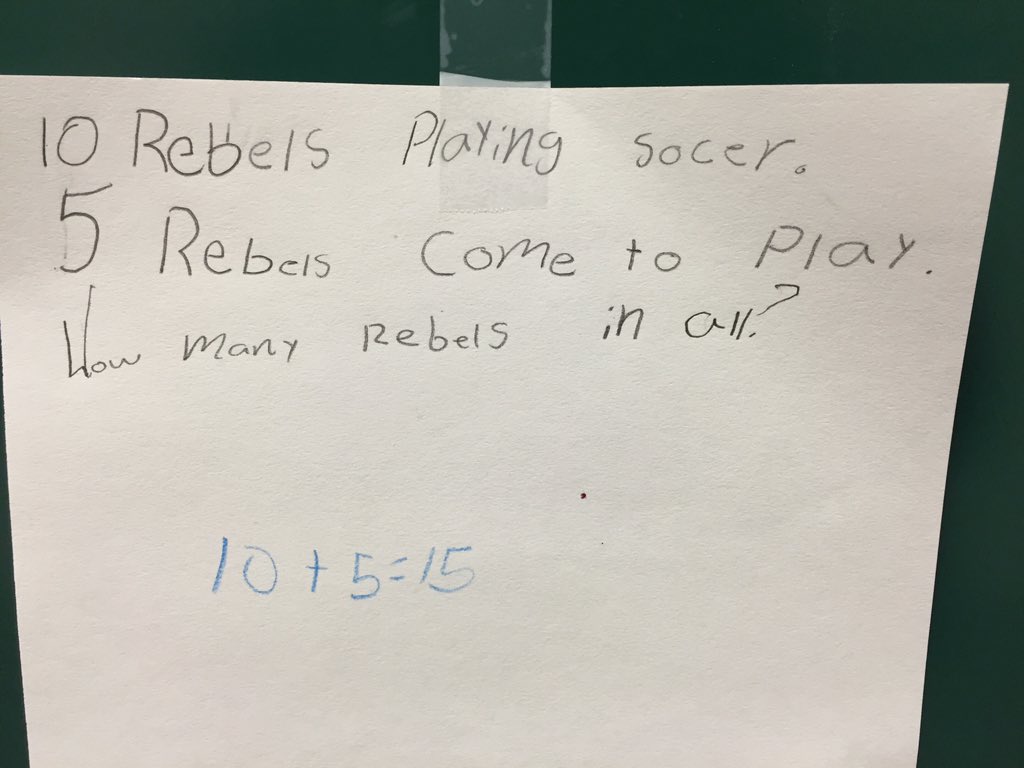 10 Rebels Playing socer.
5 Rebels Come to Play.
How many Rebels in all?
10 + 5 = 15